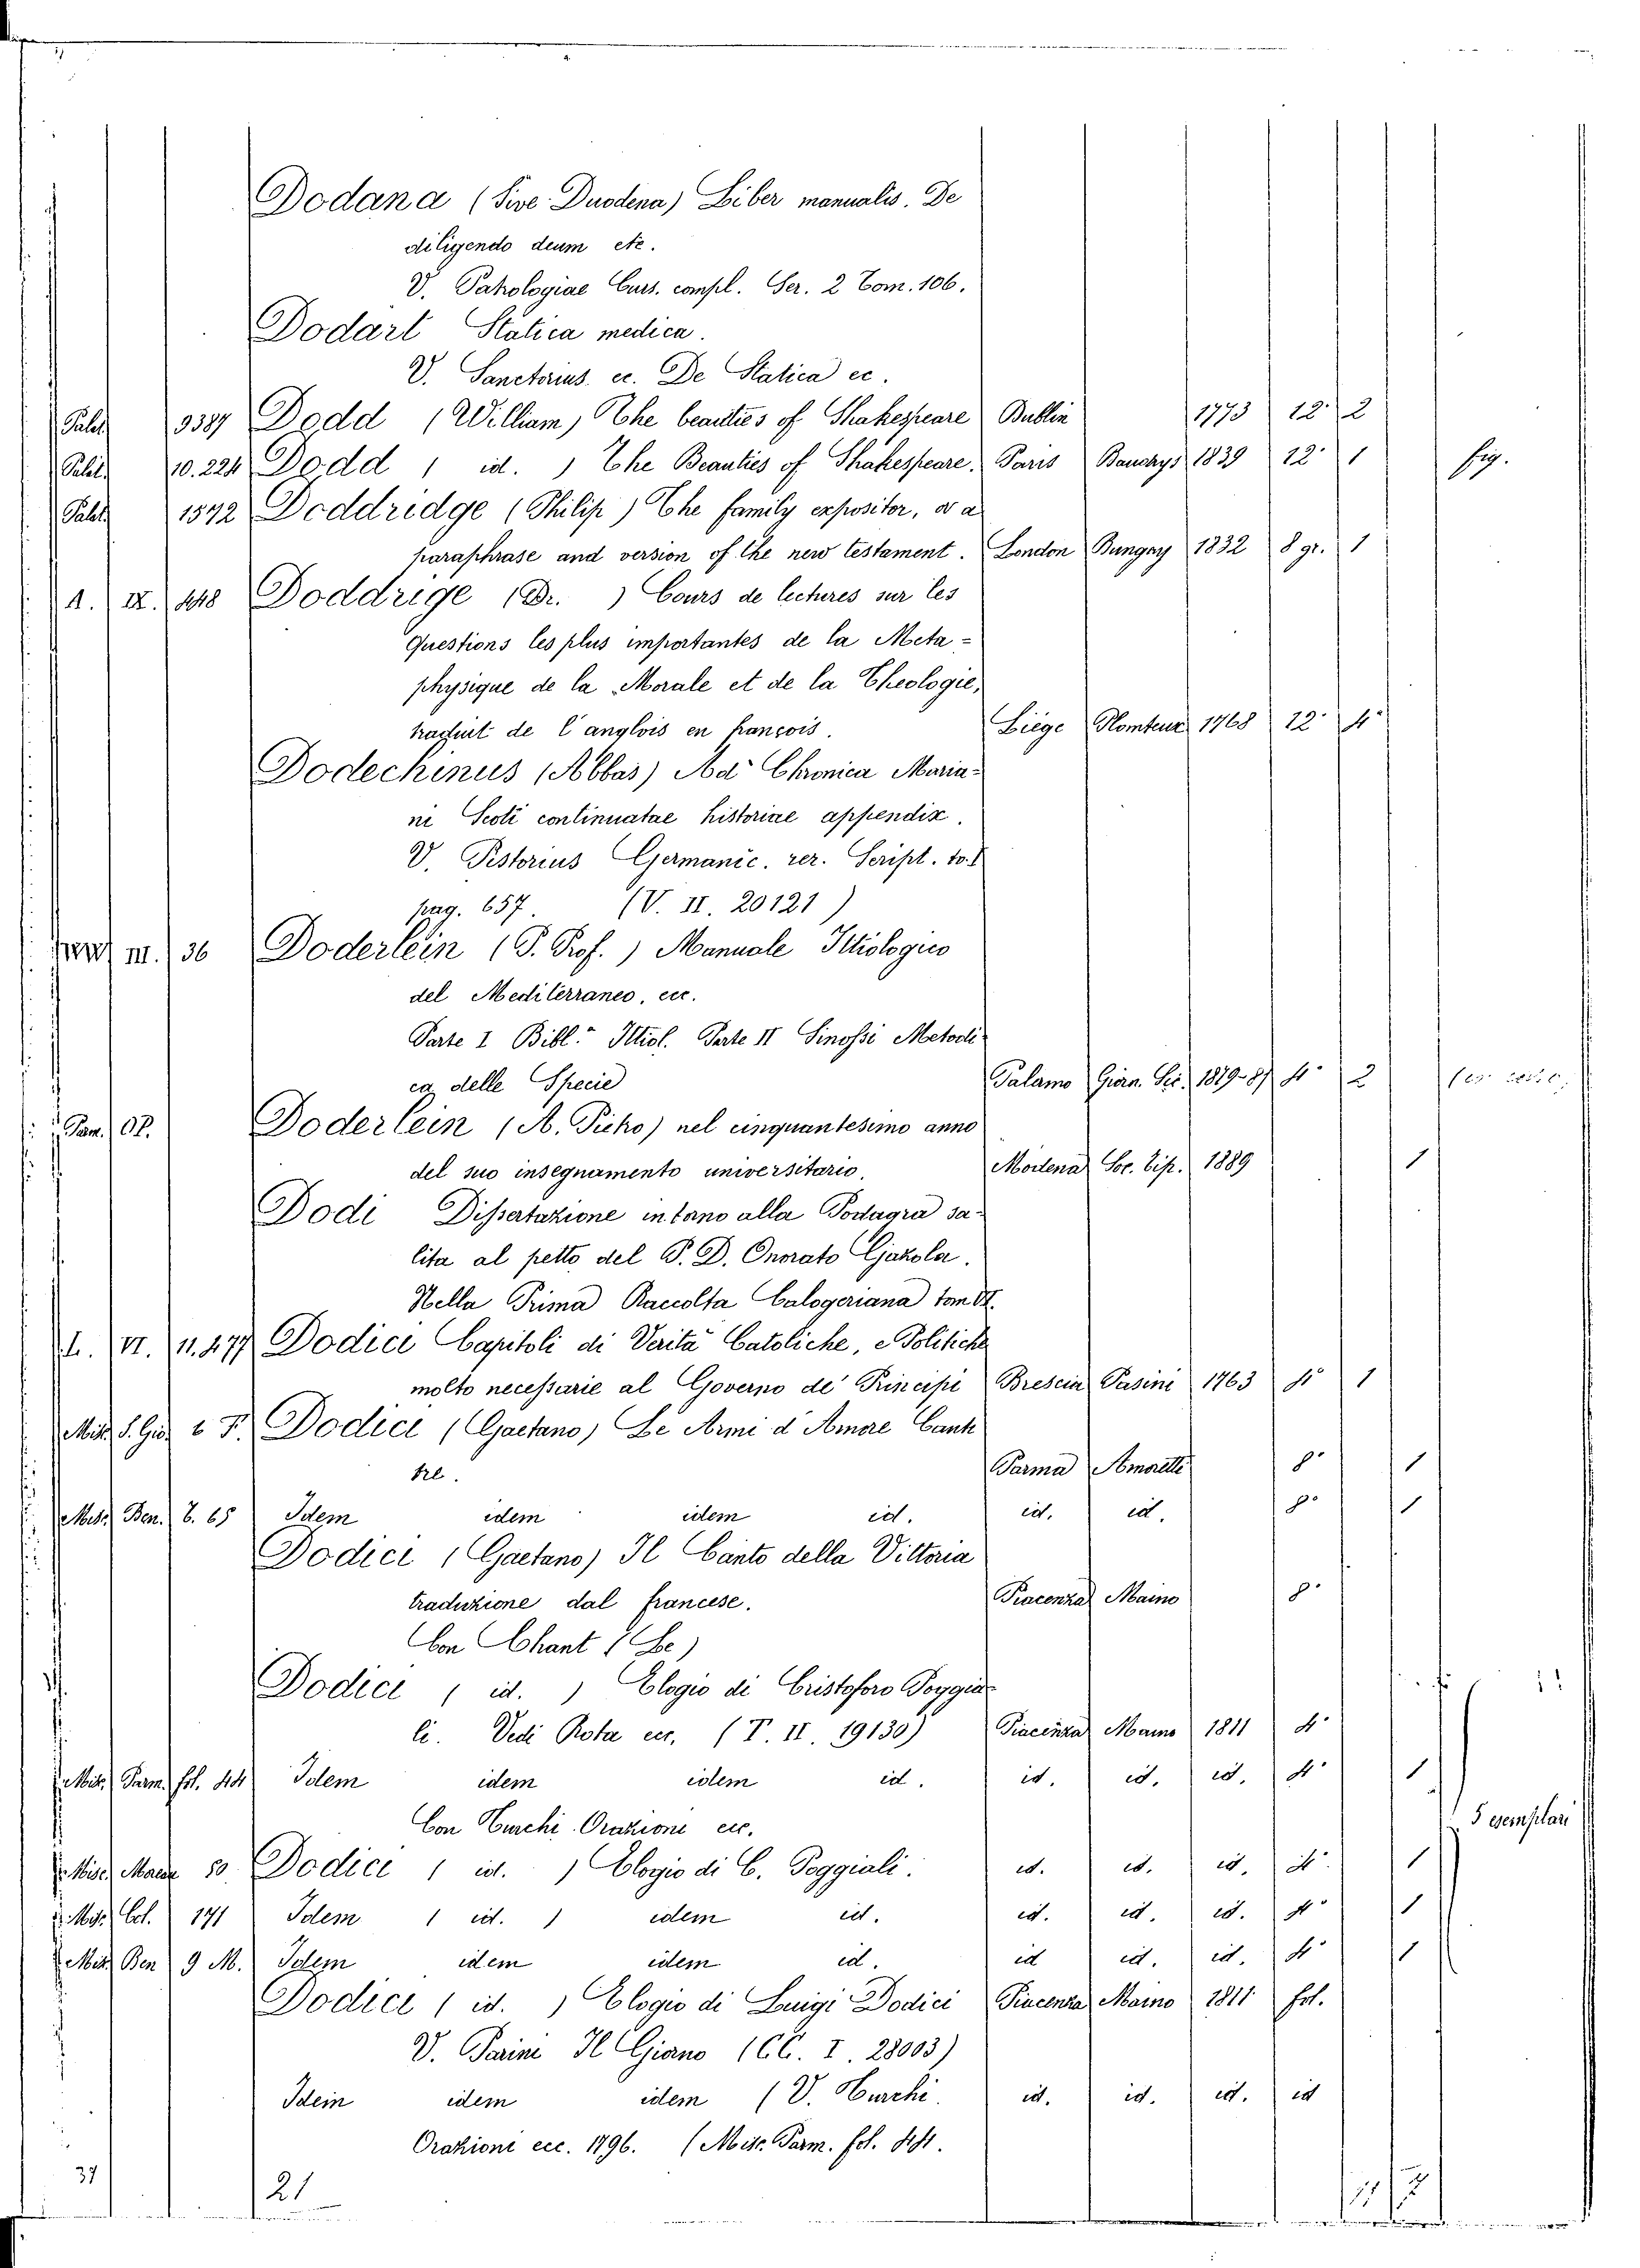 Dodana (Sive Duodena) Liber manualis. De
diligendo deum etc.
V. Patrologiae Curs. compl. Ser. 2 Tom. 106.
Dodart Statica medica.
V. Sanctorius ec. De Statica ec.
Palat. 9387 Dodd (William) The beauties of Shakespeare Dublin 1773 12° 2
Palat. 10.224 Dodd ( id. ) The Beauties of Shakespeare. Paris Baudrys 1839 12° 1 fig.
Palat. 1572 Doddridge (Philip) The family expositor, or a
paraphrase and version of the new testament. London Bungay 1832 8 gr. 1
A. IX. 448 Doddrige (Dr. ) Cours de lectures sur les
Questions les plus importantes de la Meta-
physique de la Morale et de la Theologie,
traduit de l'anglois en françois. Liège Plomteux 1768 12° 4°
Dodechinus (Abbas) Ad Chronica Maria-
ni Scoti continuatae historiae appendix.
V. Pistorius Germanic. rer. Script. to. I
pag. 657. (V. II. 20121)
III. 36 Doderlein (P. Prof.) Manuale Ittiologico
del Mediterraneo, ecc.
Parte I Bibl.ª Ittiol. Parte II Sinossi Metodi-
ca delle Specie Palamo Giorn. Sic. 1879-87 4° 2
Parm. 07. Doderlein (A. Pietro) nel cinquantesimo anno
del suo insegnamento universitario. Modena Soc. tip. 1889 1
Dodi Dissertazione intorno alla Podagra sa-
lita al petto del P. D. Onorato Gjazola.
Nella Prima Raccolta Calogeriana tom
L. VI. 11.477 Dodici Capitoli di Verità Catoliche, e Politiche
molto necessarie al Governo de' Principi Brescia Pasini 1763 4° 1
Misc. S. Gio. 6 F. Dodici (Gaetano) Le Armi d'Amore Cant
tre. Parma Amoretti 8° 1
Misc. Ben. 8. 65 Idem idem idem id. id. id. 8° 1
Dodici (Gaetano) Il Canto della Vittoria
traduzione dal francese. Piacenza Maino 8°
Con Chant (Le)
Dodici ( id. ) Elogio di Cristoforo Poggia-
li. Vedi Rota ecc. (T. II. 19130) Piacenza Maino 1811 4°
Misc. Parm. fol. 44 Idem idem idem id. id. id. id. 4° 1
Con Turchi Orazioni ecc.
5 esemplari
Misc. 50 Dodici ( id. ) Elogio di C. Poggiali. id. id. id. 4° 1
Misc. Col. 171 Idem ( id. ) idem id. id. id. id. 4° 1
Misc. Ben 9 M. Idem idem idem id. id id. id. 4° 1
Dodici ( id. ) Elogio di Luigi Dodici Piacenza Maino 1811 fol.
V. Parini Il Giano (CC. I. 28003)
Idem idem idem (V. Turchi. id. id. id. id
Orazioni ecc. 1796. (Misc. Parm. fol. 44.
37
21